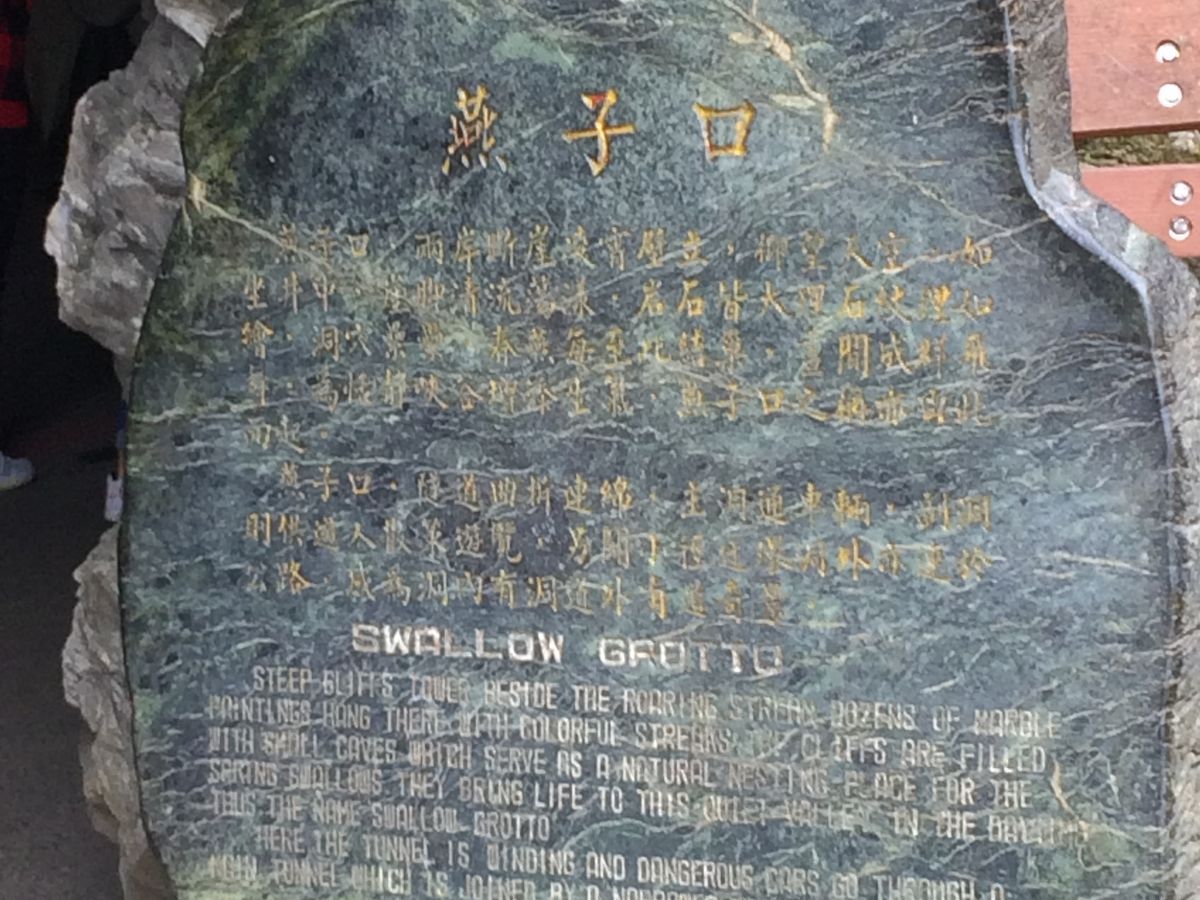 燕子口
燕子口,兩岸斷崖凌霄壁立,仰望天空,如
坐井中,崖腳清流蕩漾,岩石皆大理石紋理如
繪,洞穴纍纍,春燕每至此結巢,晝間成群飛
為恬靜峽谷增添生氣,燕子口之稱亦由此
而起。
燕子口,隧道曲折連綿,主洞通車輛,副洞
則供遊人散策遊覽,另開 隧道 外亦連於
公路,成為洞內有洞道外有道奇景。
SWALLOW GROTTO
STEEP CLIFFS TOWER BESIDE THE ROARING STREAM DOZENS OF MARBLE
PAINTINGS HANG THERE WITH COLORFUL STREAKS THE CLIFFS ARE FILLED
WITH SMALL CAVES WHICH SERVE AS A NATURAL NESTING PLACE FOR THE
SPRING SWALLOWS THEY BRING LIFE TO THIS QUIET VALLEY IN THE DAYTIME
THUS THE NAME SWALLOW GROTTO
HERE THE TUNNEL IS WINDING AND DANGEROUS CARS GO THROUGH A
MAIN TUNNEL WHICH IS JOINED BY A